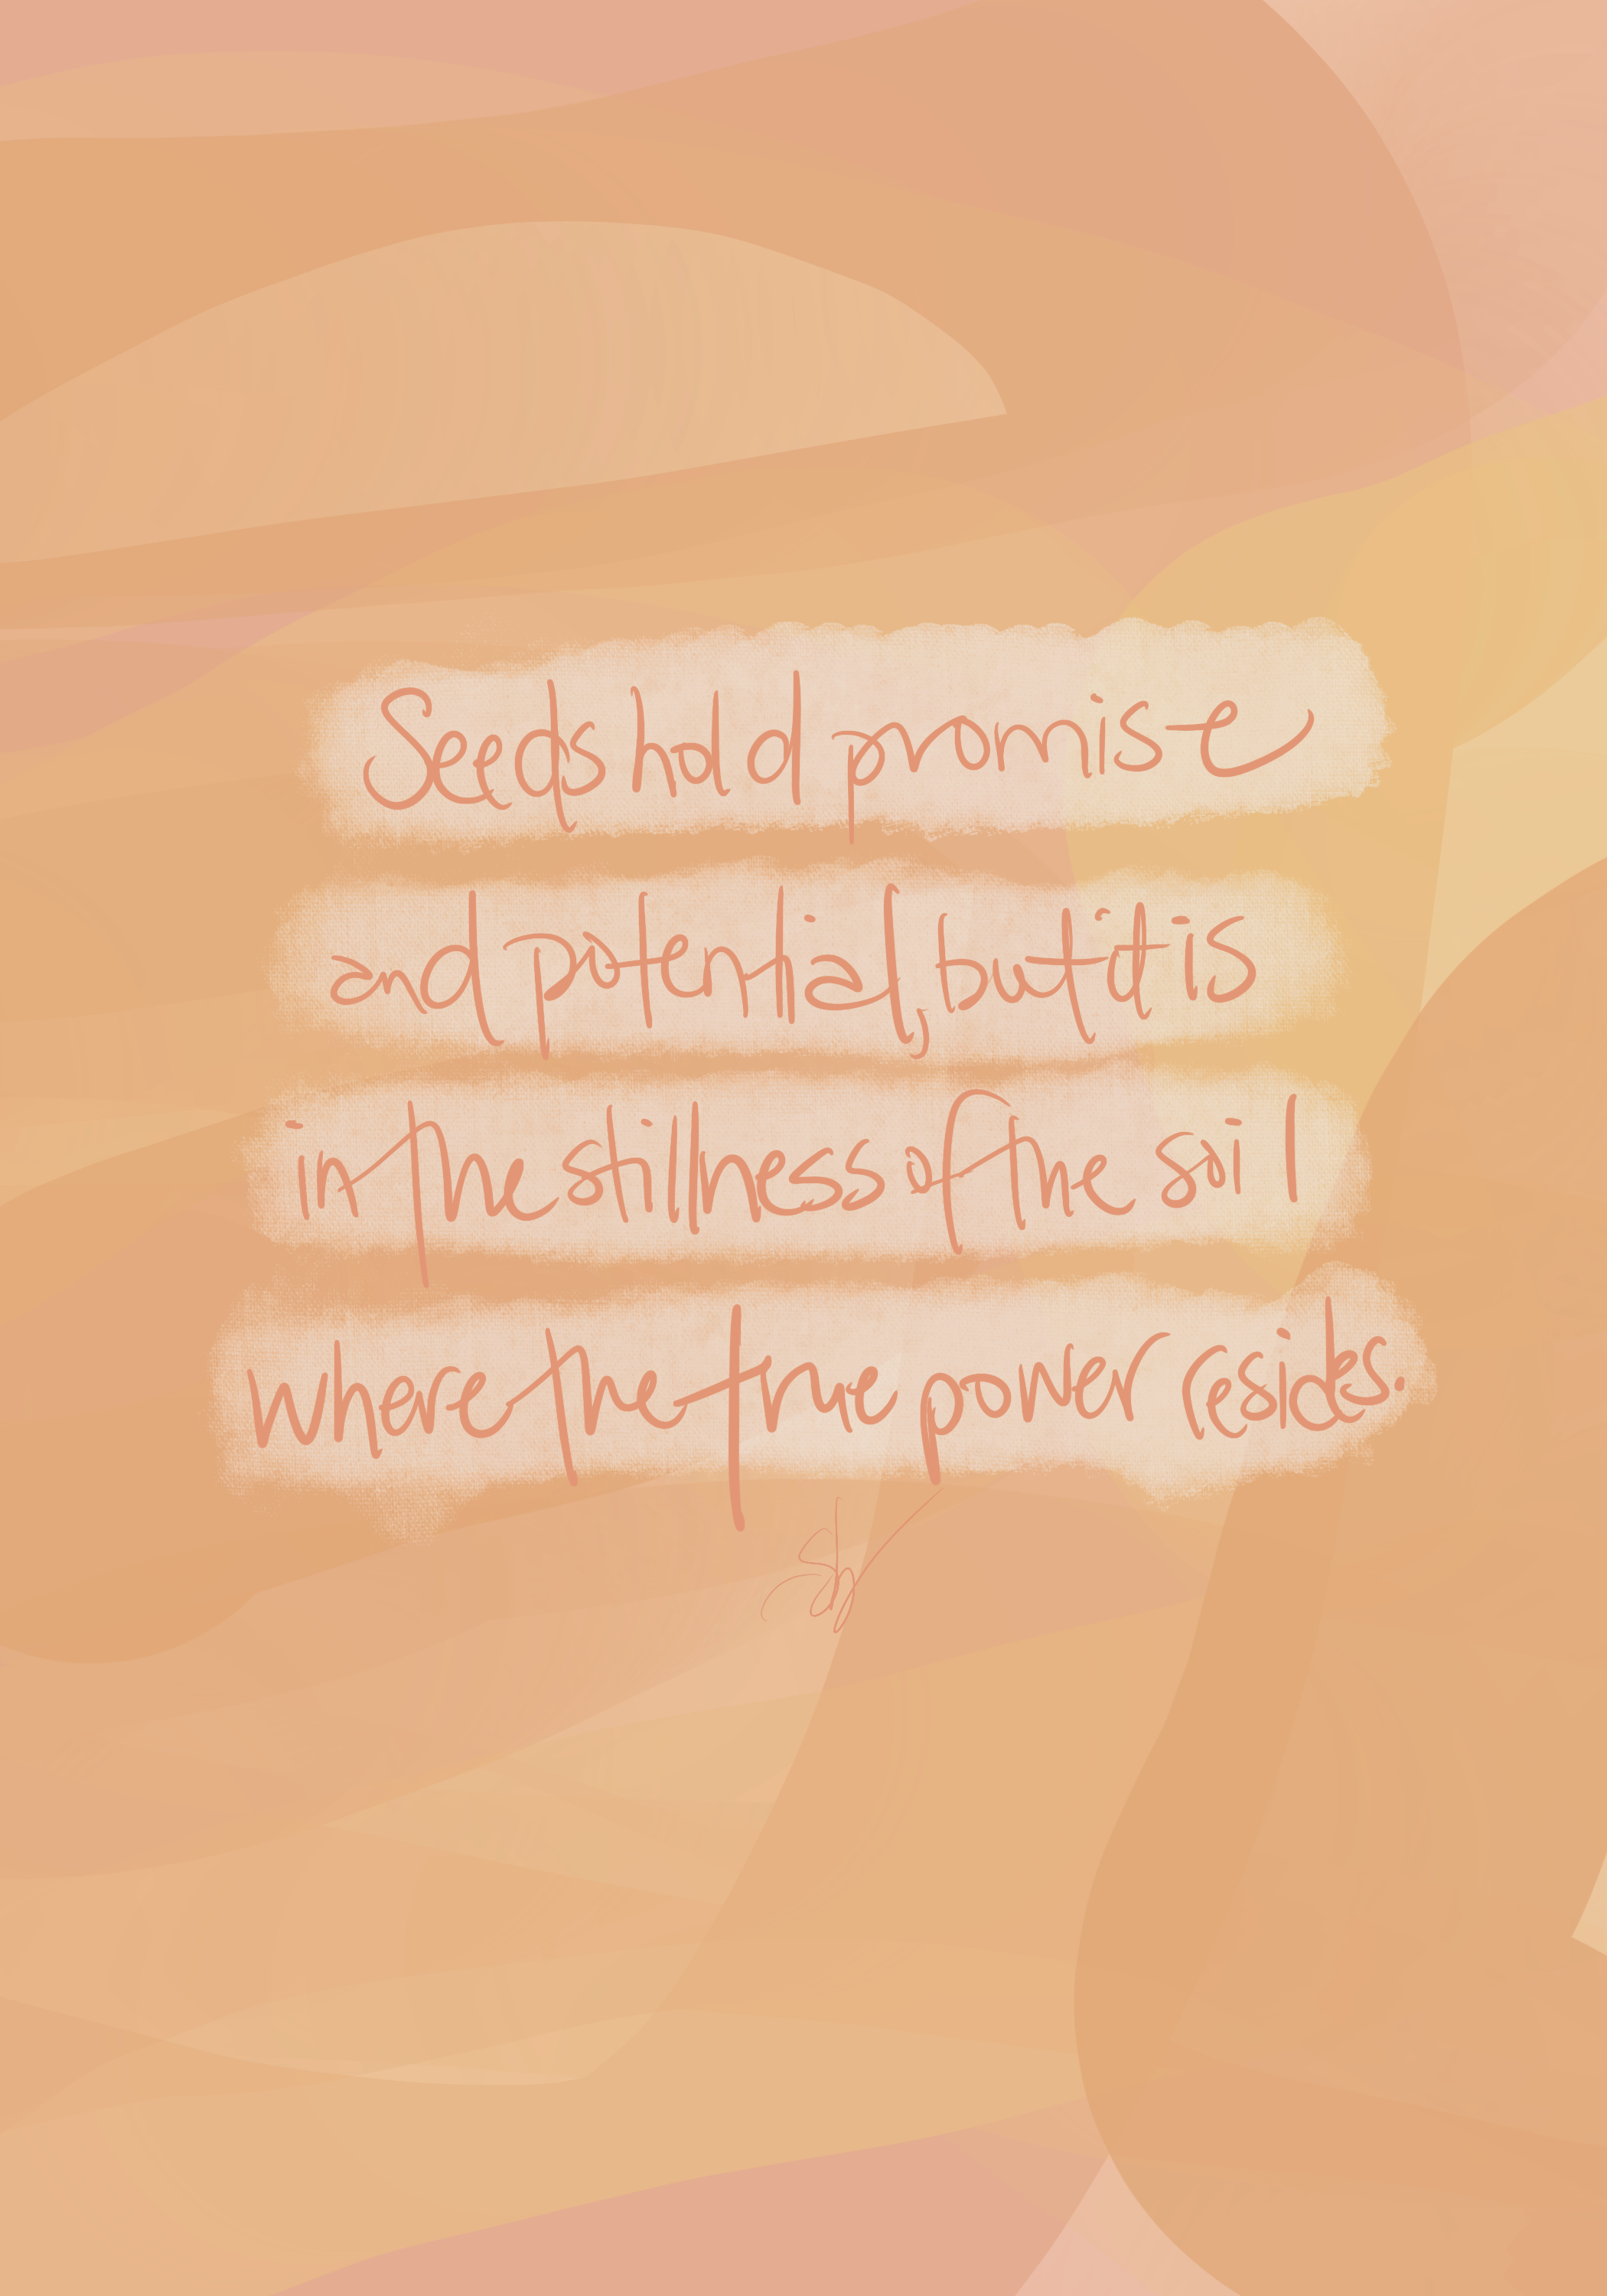 Seeds hold promise
and potential, but it is
in the stillness of the soil
where the true power resides.